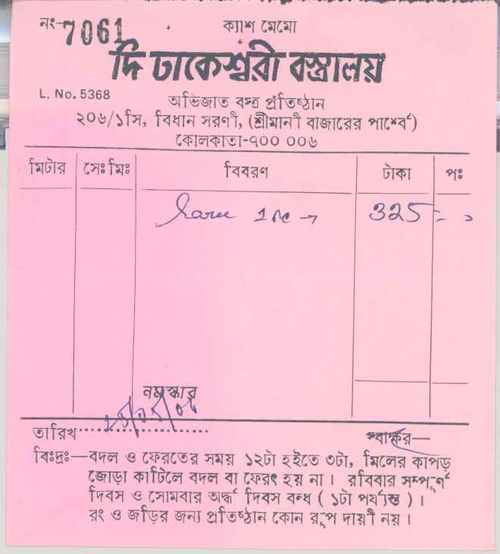 নং- 7061 ক্যাশ মেমো
দি ঢাকেশ্বরী বস্ত্রালয়
L. No. 5368
অভিজাত বস্ত্র প্রতিষ্ঠান
২০৬/১সি, বিধান সরণী, (শ্রীমানী বাজারের পার্শ্বে)
কোলকাতা-৭০০ ০০৬
মিটার সেঃমিঃ বিবরণ টাকা পঃ
Saree 1 Pc → 325=
নমস্কার
তারিখ
স্বাক্ষর—
বিঃদ্রঃ—বদল ও ফেরতের সময় ১২টা হইতে ৩টা, মিলের কাপড়
জোড়া কাটিলে বদল বা ফেরৎ হয় না। রবিবার সম্পূর্ণ
দিবস ও সোমবার অর্দ্ধ দিবস বন্ধ (১টা পর্যন্ত)।
রং ও জড়ির জন্য প্রতিষ্ঠান কোন রূপ দায়ী নয়।